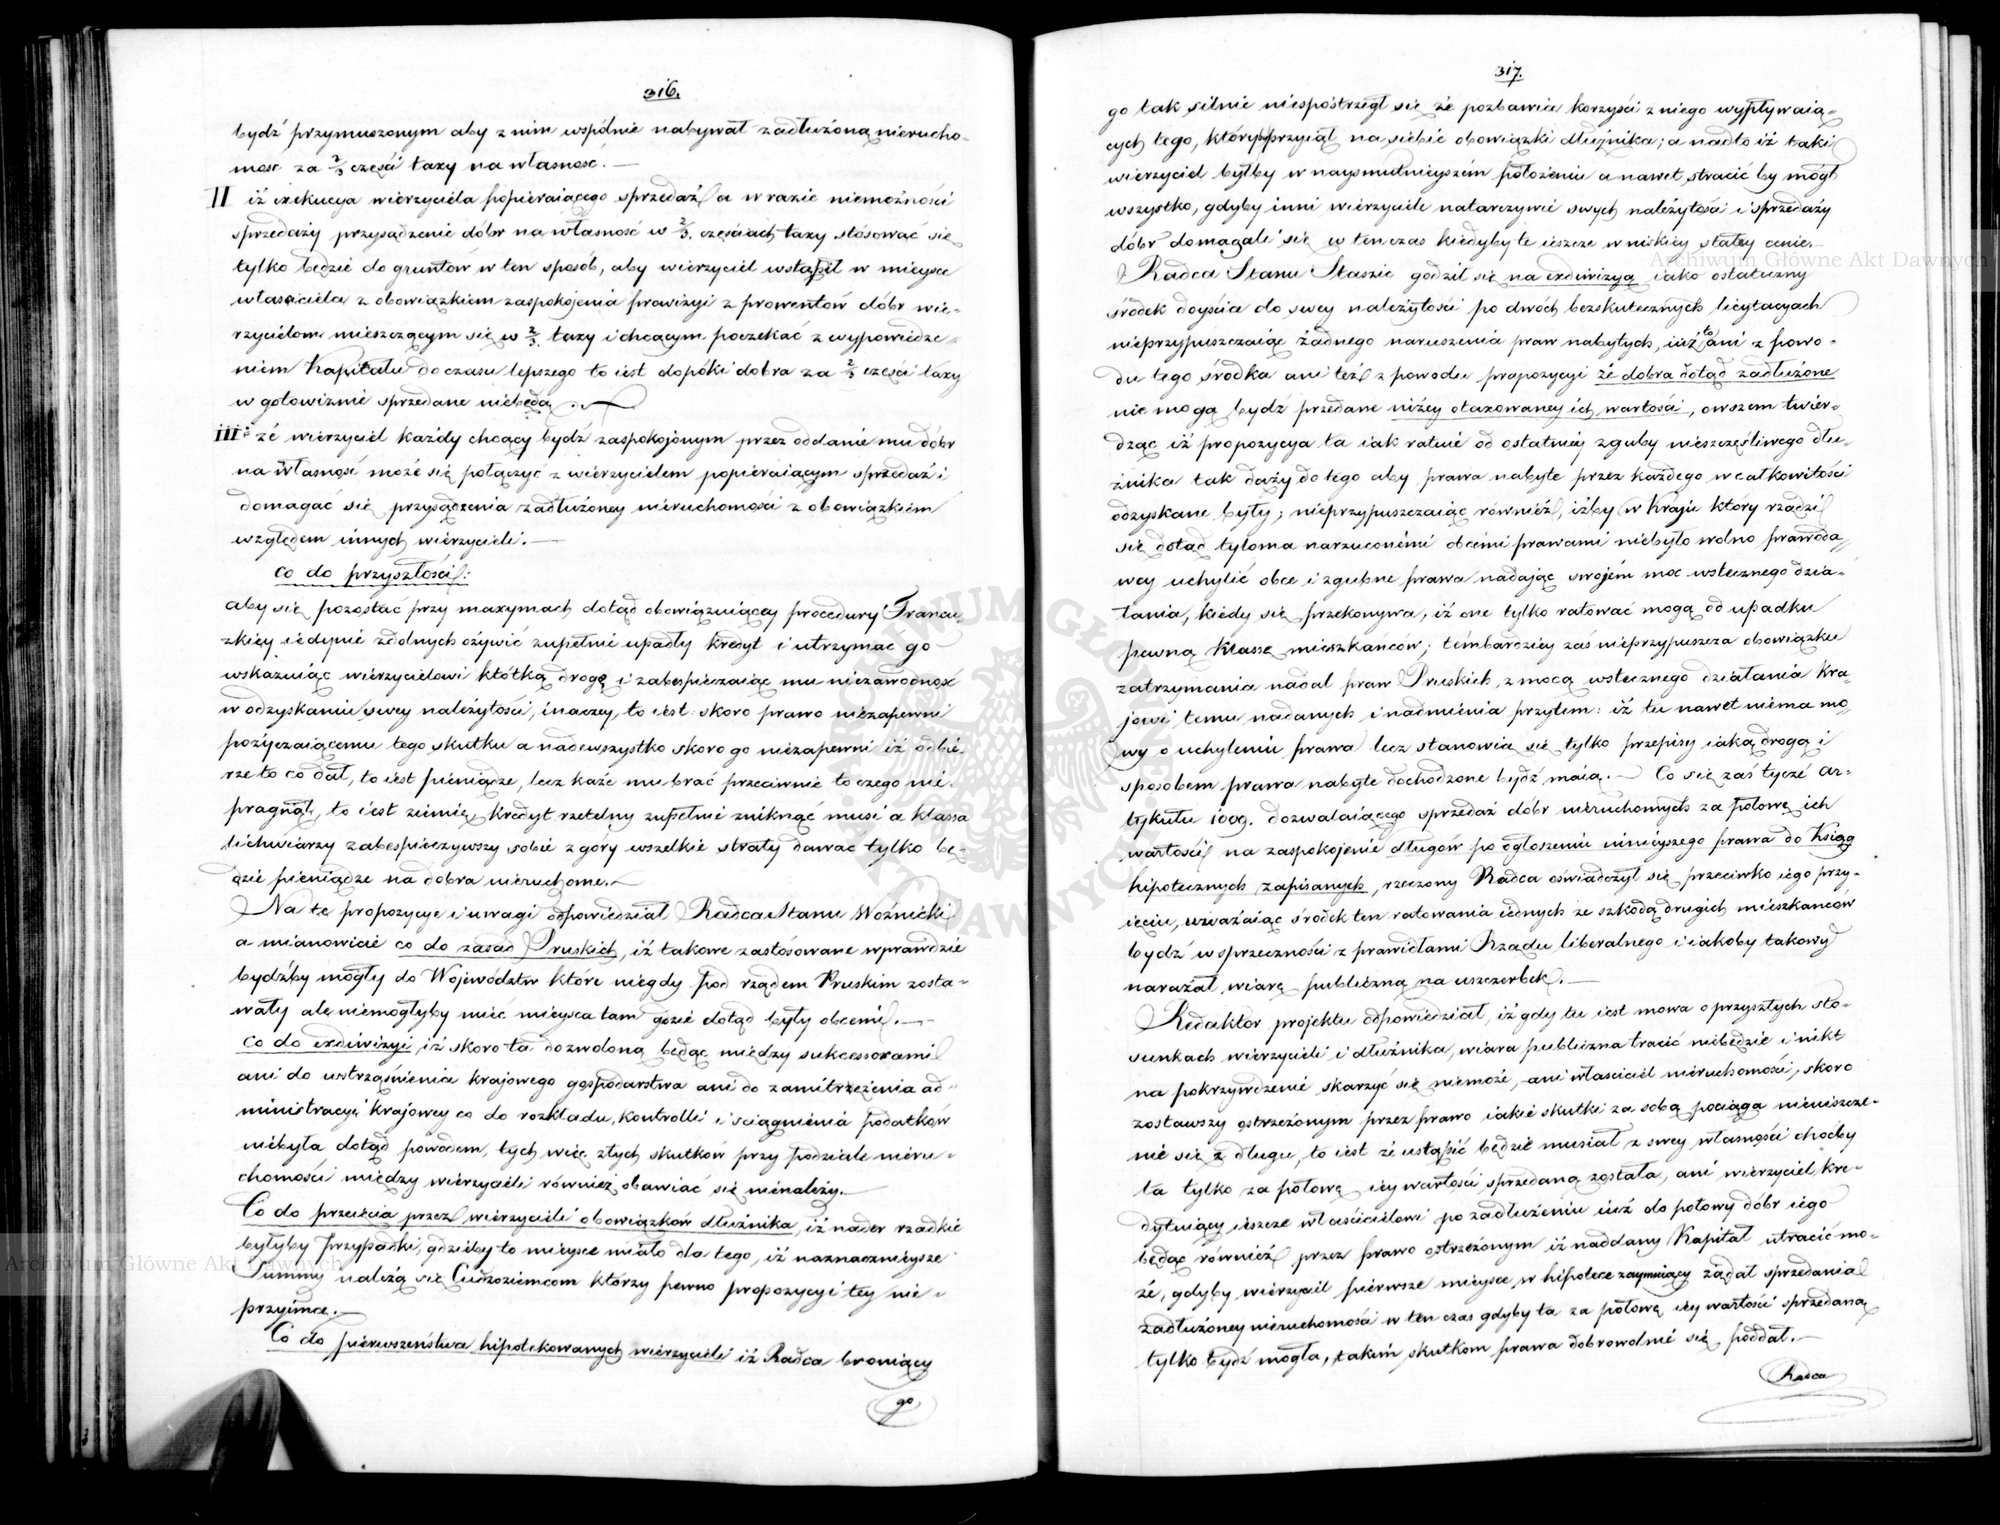 316.
bydź przymuszonym aby z nim wspólnie nabywał zadłużoną nierucho-
mość za 2/3 części taxy na własność. —
II iż exekucya wierzyciela popieraiącego sprzedaż a w razie niemożności
sprzedaży przysądzenie dóbr na własność w 2/3. częściach taxy stósować się
tylko będzie do gruntów w ten sposób, aby wierzyciel wstąpił w mieysce
właściciela z obowiązkiem zaspokojenia prowizyi z prowentów dóbr wie-
rzycielom mieszczącym się w 2/3. taxy i chcącym poczekać z wypowiedze-
niem Kapitału do czasu lepszego to iest dopóki dobra za 2/3 części taxy
w gotowiznie sprzedane niebędą. —
III że wierzyciel każdy chcący bydź zaspokojonym przez oddanie mu dóbr
na własność może się połączyć z wierzycielem popieraiącym sprzedaż i
domagać się przysądzenia zadłużoney nieruchomości z obowiązkiem
względem innych wierzycieli. —
co do przyszłości:
aby się pozostać przy maxymach dotąd obowiązuiącey procedury Francu
zkiey iedynie zdolnych ożywić zupełnie upadły kredyt i utrzymać go
wskazuiąc wierzycielowi krótką drogę i zabespieczaiąc mu niezawodność
w odzyskaniu swey należytości, inaczey, to iest: skoro prawo niezapewni
pożyczaiącemu tego skutku a nadewszystko skoro go niezapewni iż odbie-
rze to co dał, to iest pieniądze, lecz każe mu brać przeciwnie to czego nie
pragnął, to iest ziemię, kredyt rzetelny zupełnie zniknąć musi a klassa
lichwiarzy zabespieczywszy sobie z góry wszelkie straty dawać tylko bę-
dzie pieniądze na dobra nieruchome. —
Na te propozycye i uwagi odpowiedział Radca Stanu Woźnicki
a mianowicie co do zasad Pruskich, iż takowe zastósowane wprawdzie
bydźby mogły do Województw które niegdy pod rządem Pruskim zosta-
wały ale niemogłyby mieć mieysca tam gdzie dotąd były obcemi. —
Co do exdiwizyi, iż skoro ta dozwoloną będąc między sukcessorami
ani do wstrząśnienia krajowego gospodarstwa ani do zamitrzeżenia ad-
ministracyi krajowey co do rozkładu, kontrolli i ściągnienia podatków
niebyła dotąd powodem, tych więc złych skutków przy podziale nieru-
chomości między wierzycieli również obawiać się nienależy. —
Co do przeięcia przez wierzycieli obowiązków dłużnika, iż nader rzadkie
byłyby przypadki, gdzieby to mieysce miało dla tego, iż naznacznieysze
Summy należą się Cudzoziemcom którzy pewno propozycyi tey nie
przyimą. —
Co do pierwszeństwa hipotekowanych wierzycieli iż Radca broniący
go
317.
go tak silnie niespostrzegł się że pozbawia korzyści z niego wypływaią-
cych tego, który przyiął na siebie obowiązki dłużnika; a nadto iż taki
wierzyciel byłby w naysmutnieyszém położeniu a nawet stracić by mógł
wszystko, gdyby inni wierzyciele natarczywie swych należytości i sprzedaży
dóbr domagali się w ten czas kiedyby te ieszcze w niskiey stały cenie. —
Radca Stanu Staszic godził się na exdiwizyą iako ostateczny
środek doyścia do swey należytości po dwóch bezskutecznych licytacyach
nieprzypuszczaiąc żadnego naruszenia praw nabytych, iuż to ani z powo-
du tego środka ani też z powodu propozycyi że dobra dotąd zadłużone
nie mogą bydź przedane niżey otaxowaney ich wartości, owszem twier-
dząc iż propozycya ta iak ratuie od ostatniey zguby nieszczęśliwego dłu-
żnika tak dąży do tego aby prawa nabyte przez każdego w całkowitości
odzyskane były; nieprzypuszczaiąc również, iżby w Kraju który rządził
się dotąd tyloma narzuconémi obcémi prawami niebyło wolno prawoda-
wcy uchylić obce i zgubne prawa nadając swojém moc wstecznego dzia-
łania, kiedy się przekonywa, iż one tylko ratować mogą od upadku
pewną Klassę mieszkańców; témbardziey zaś nieprzypuszcza obowiązku
zatrzymania nadal praw Pruskich, z mocą wstecznego działania Kra-
jowi temu nadanych i nadmienia przytem: iż tu nawet niema mo-
wy o uchyleniu prawa lecz stanowią się tylko przepisy iaką drogą i
sposobem prawa nabyte dochodzone bydź maią. — Co się zaś tycze ar-
tykułu 1009. dozwalaiącego sprzedaż dóbr nieruchomych za połowę ich
wartości na zaspokojenie długów po ogłoszeniu ninieyszego prawa do Ksiąg
hipotecznych zapisanych, rzeczony Radca oświadczył się przeciwko iego przy-
ięciu, uważaiąc środek ten ratowania iednych ze szkodą drugich mieszkańców
bydź w sprzeczności z prawidłami Rządu liberalnego i iakoby takowy
narażał wiarę publiczną na uszczerbek. —
Redaktor projektu odpowiedział, iż gdy tu iest mowa o przyszłych sto-
sunkach wierzycieli i dłużnika, wiara publiczna tracić niebędzie i nikt
na pokrzywdzenie skarżyć się niemoże, ani właściciel nieruchomości, skoro
zostawszy ostrzeżonym przez prawo iakie skutki za sobą pociąga nieuiszcze-
nie się z długu, to iest że ustąpić będzie musiał z swey własności choćby
ta tylko za połowę iey wartości sprzedaną została, ani wierzyciel kre-
dytuiący ieszcze właścicielowi po zadłużeniu iuż do połowy dóbr iego
będąc również przez prawo ostrzeżonym iż naddany Kapitał utracić mo-
że, gdyby wierzyciel pierwsze mieysce w hipotece zaymuiący żądał sprzedania
zadłużoney nieruchomości w ten czas gdyby ta za połowę iey wartości sprzedaną
tylko bydź mogła, takim skutkom prawa dobrowolnie się poddał. —
Radca
Archiwum Główne Akt Dawnych
Archiwum Główne Akt Dawnych
ARCHIWUM GŁÓWNE AKT DAWNYCH